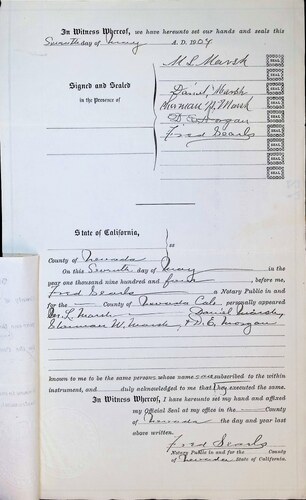 In Witness Whereof, we have hereunto set our hands and seals this
Seventh day of May A. D. 1904
M. L. Marsh SEAL
SEAL
Signed and Sealed
in the Presence of
Daniel Marsh SEAL
Sherman W. Marsh SEAL
D. E. Morgan SEAL
Fred Searls SEAL
SEAL
SEAL
SEAL
State of California,
ss
County of Nevada
On this Seventh day of May in the
year one thousand nine hundred and four before me,
Fred Searls a Notary Public in and
for the County of Nevada Cal. personally appeared
M. L. Marsh, Daniel Marsh,
Sherman W. Marsh, & D. E. Morgan
known to me to be the same persons whose names are subscribed to the within
instrument, and duly acknowledged to me that they executed the same.
In Witness Whereof, I have hereunto set my hand and affixed
my Official Seal at my office in the County
of Nevada the day and year last
above written.
Fred Searls
Notary Public in and for the County
of Nevada State of California.